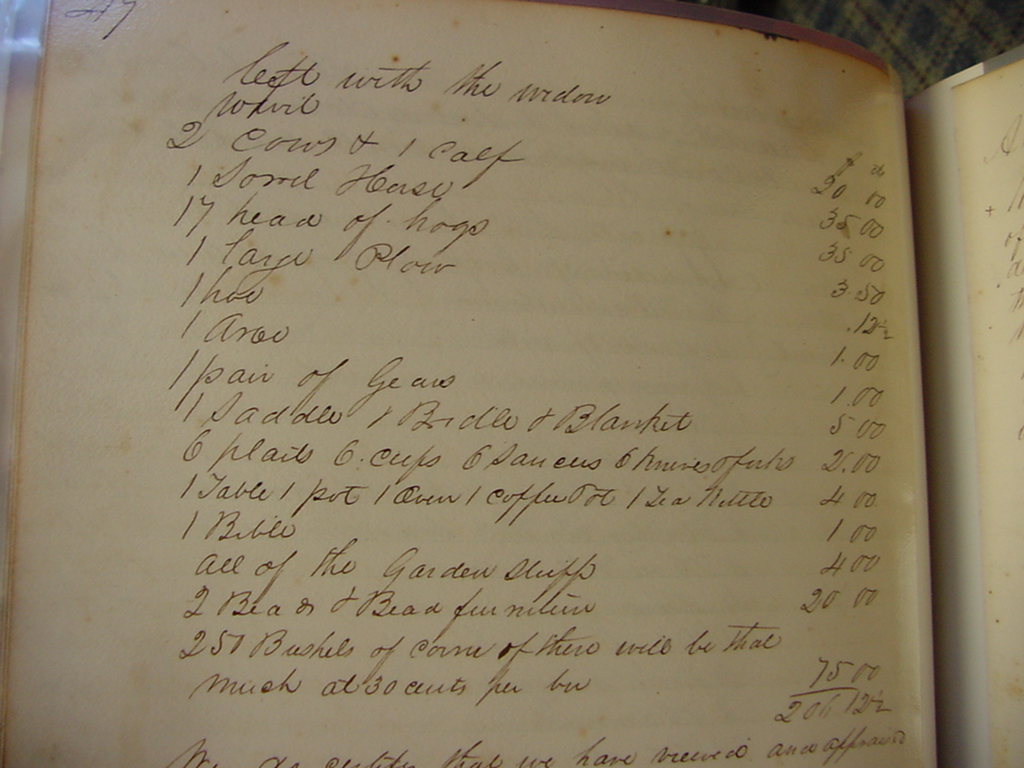 47
left with the widow
2 Cows & 1 Calf $20 00
1 Sorrel Horse 35 00
17 head of hogs 35 00
1 large Plow 3.50
1 hoe .12½
1 Axe 1.00
1 pair of Gears 1.00
1 Saddle 1 Bridle & Blanket 5 00
6 plaits 6 cups 6 Saucers 6 Knives & forks 2.00
1 Table 1 pot 1 Oven 1 coffee Pot 1 Tea Kittle 4 00
1 Bible 1 00
all of the Garden Stuff 4 00
2 Beads & Bead furniture 20 00
250 Bushels of corn if there will be that
much at 30 cents per bu 75 00
206 12½
We do certify that we have viewed and appraised